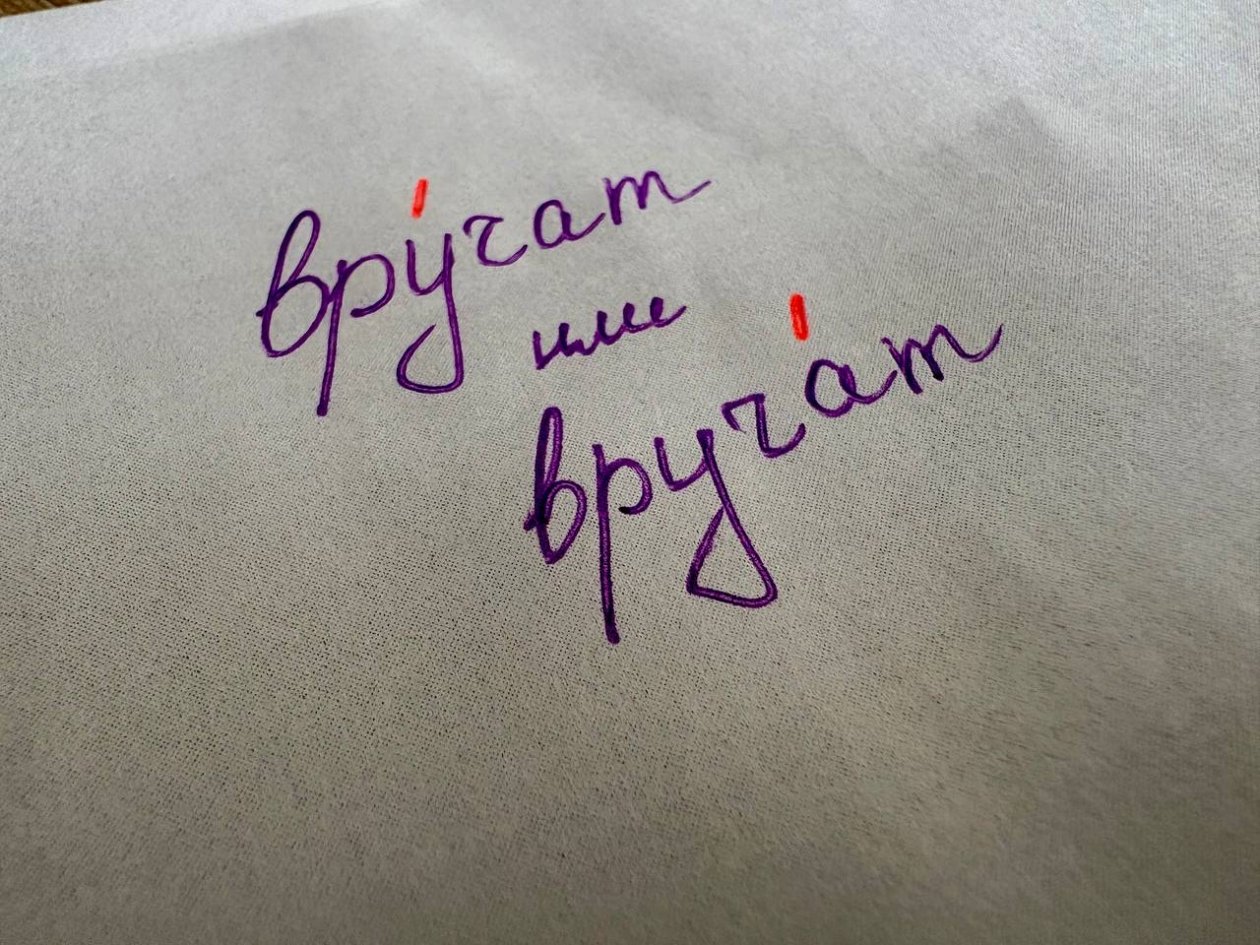 вру́чат
или
вруча́т